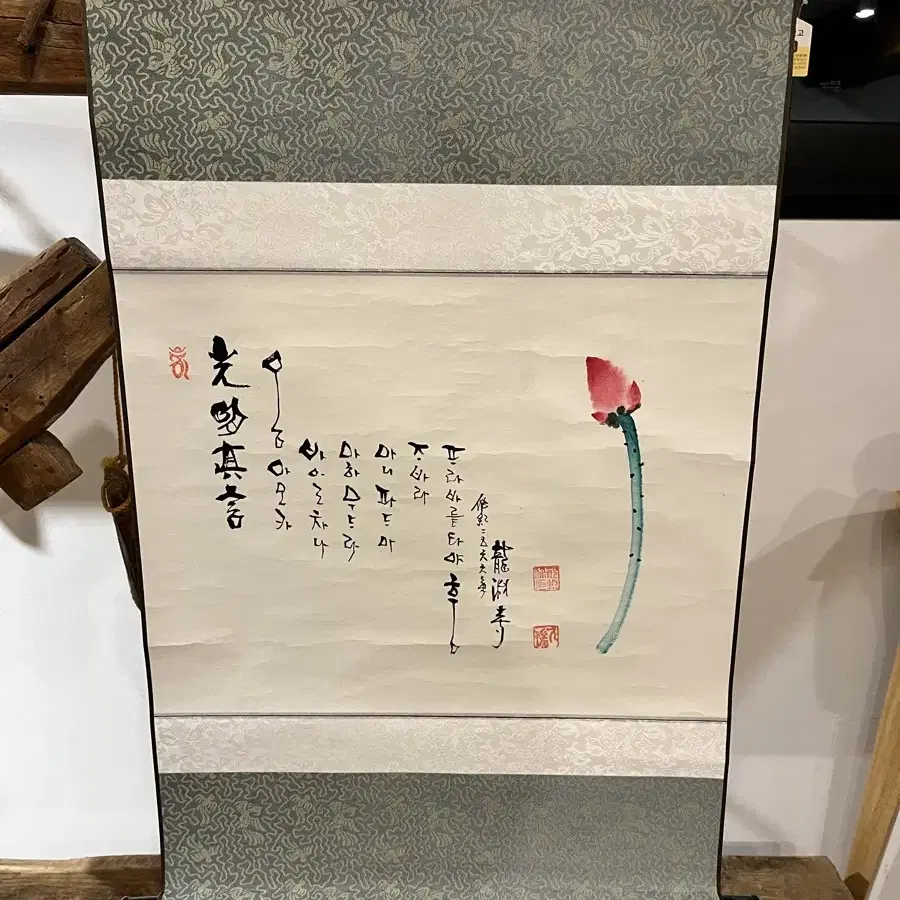 光明眞言
옴 아모카
바이로차나
마하 무드라
마니 파드마
즈바라
프라바를타야 훔
佛紀二五六六年
龍